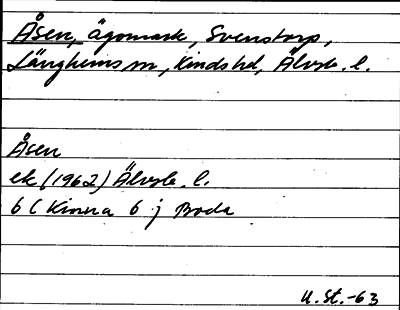 Åsen, ägomark, Svenstorp,
Länghems sn, Kinds hd, Älvsb. l.
Åsen
ek (1962) Älvsb. l.
6 C Kinna 6 j Boda
U. St. -63